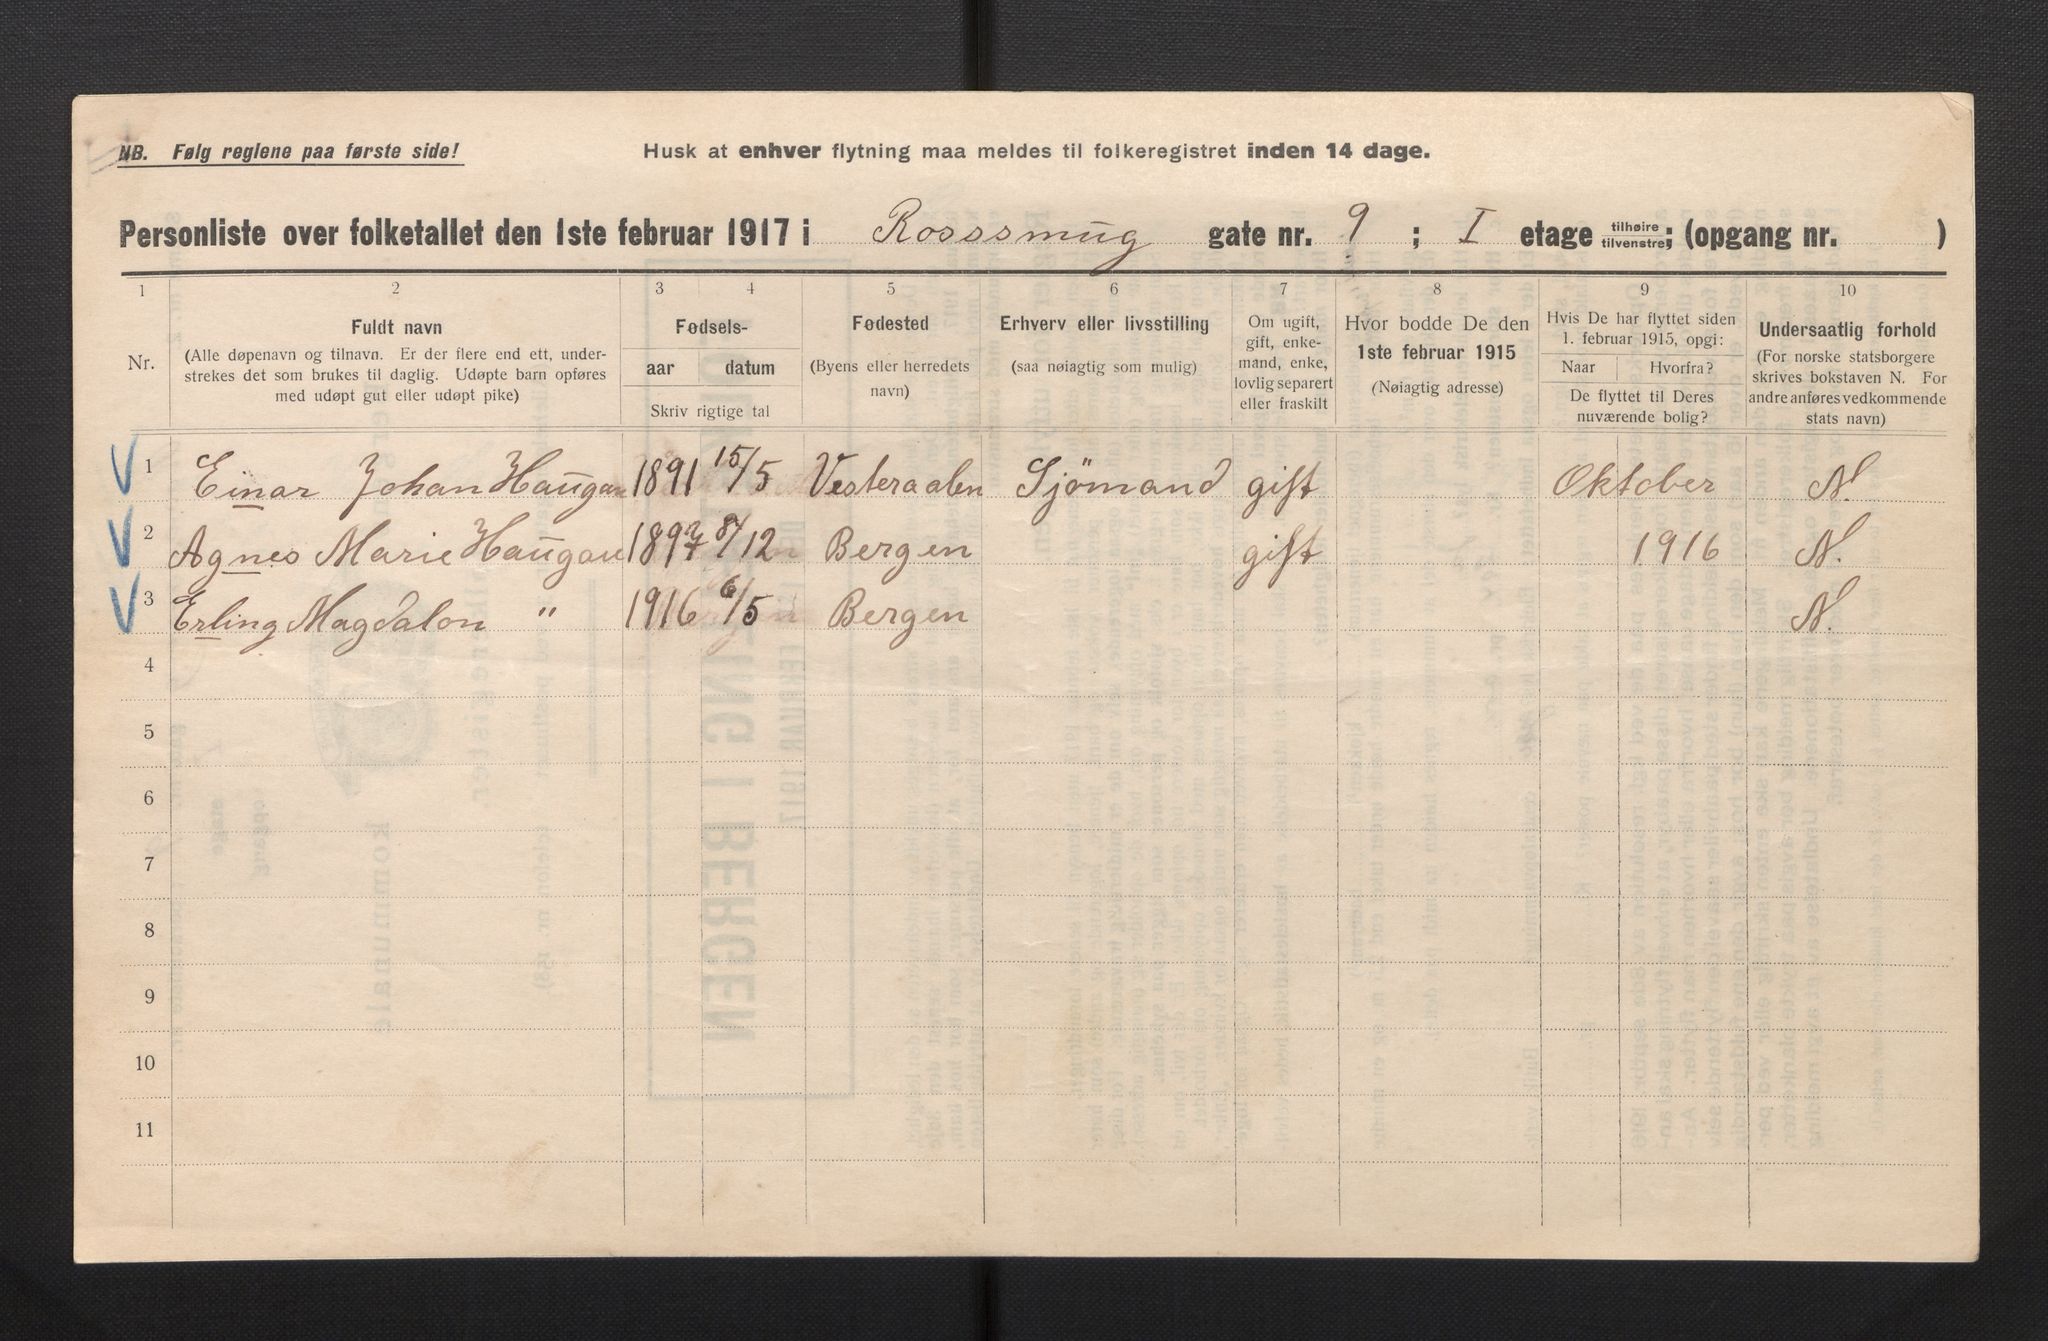 NB. Følg reglene paa første side!
Husk at enhver flytning maa meldes til folkeregistret inden 14 dage.
Personliste over folketallet den 1ste februar 1917 i Rosssmug gate nr. 9 ; I etage tilhøire tilvenstre; (opgang nr. )
1 2 3 4 5 6 7 8 9 10
Nr.
Fuldt navn
(Alle døpenavn og tilnavn. Er der flere end ett, under-
strekes det som brukes til daglig. Udøpte barn opføres
med udøpt gut eller udøpt pike)
Fødsels-
aar datum
Skriv rigtige tal
Fødested
(Byens eller herredets
navn)
Erhverv eller livsstilling
(saa nøiagtig som mulig)
Om ugift,
gift, enke-
mand, enke,
lovlig separert
eller fraskilt
Hvor bodde De den
1ste februar 1915
(Nøiagtig adresse)
Hvis De har flyttet siden
1. februar 1915, opgi:
Naar Hvorfra?
De flyttet til Deres
nuværende bolig?
Undersaatlig forhold
(For norske statsborgere
skrives bokstaven N. For
andre anføres vedkommende
stats navn)
1 Einar Johan Haugan 1891 15/5 Vesteraalen Sjömand gift Oktober N.
2 Agnes Marie Haugan 1897 8/12 Bergen gift 1916 N.
3 Erling Magdalon " 1916 6/5 Bergen N.
4
5
6
7
8
9
10
11